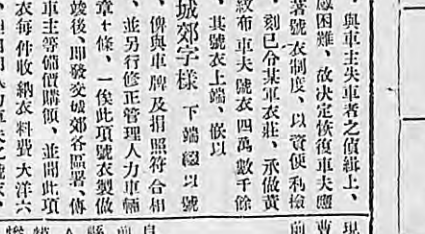 與車主失車者之偵緝上、
感困難、故決定恢復車夫
著號衣制度、以資便利檢
、刻已令某軍衣莊、承做黃
紋布車夫號衣四萬數千餘
、其號衣上端、嵌以
城郊字樣 下端綴以號
、俾與車牌及捐照符合相
、並另行修正管理人力車輛
章十條、一俟此項號衣製做
竣後、即發交城郊各區署、傳
車主等備價購領、並聞此項
衣每件收納衣料費大洋六